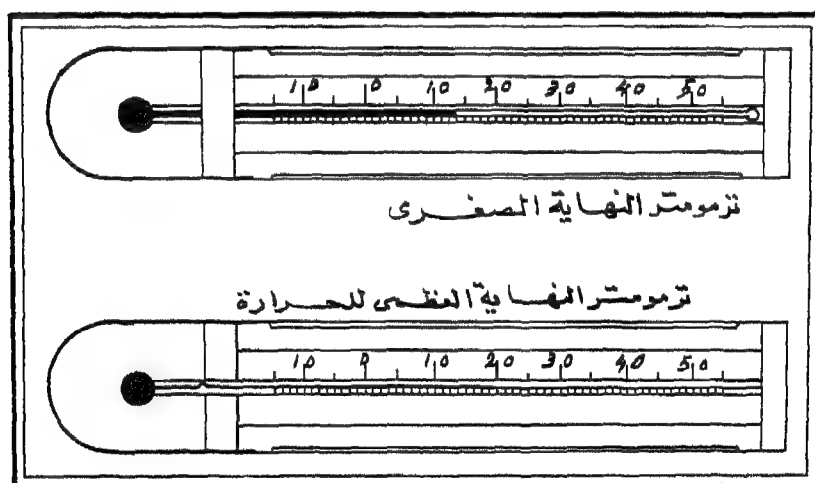 10 0 10 20 30 40 50
ترمومتر النهاية الصغرى
ترمومتر النهاية العظمى للحرارة
10 0 10 20 30 40 50